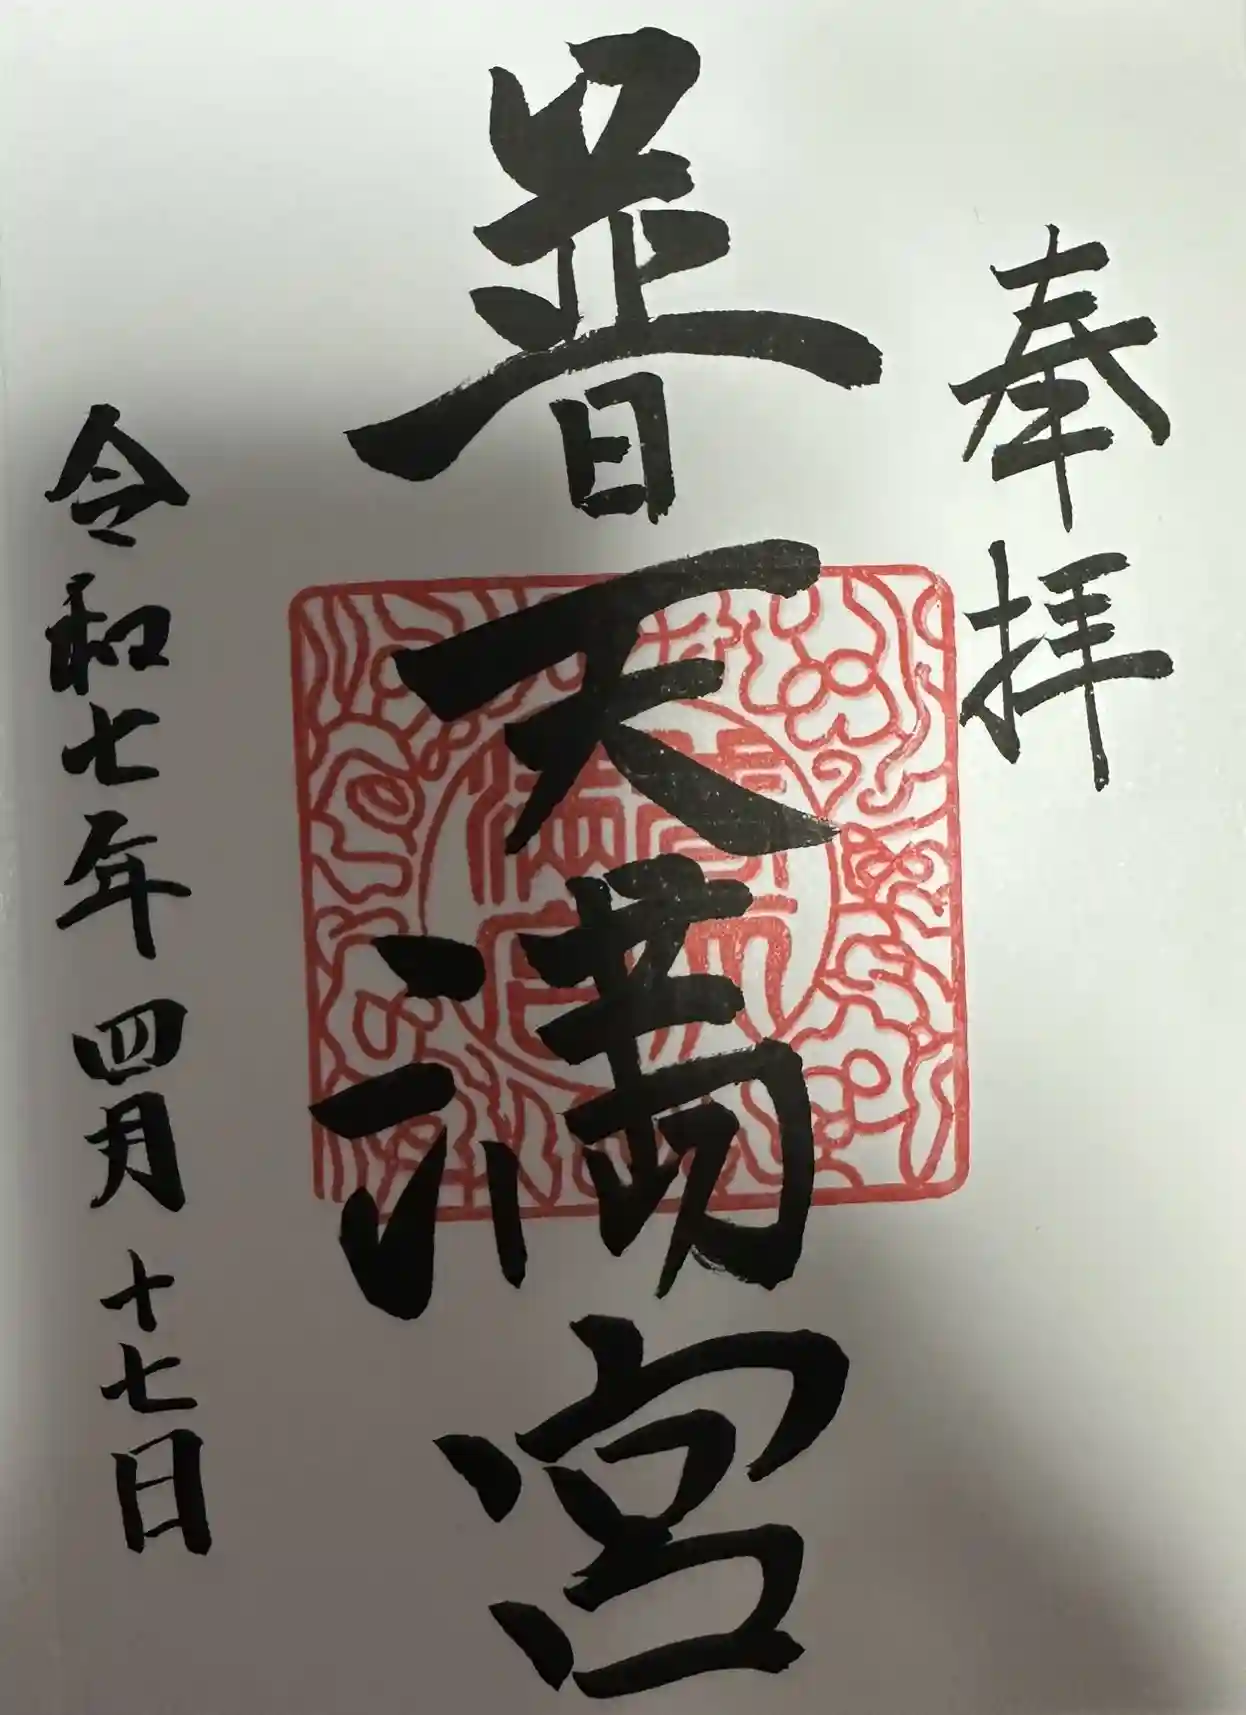 奉拝
普天満宮
令和七年 四月 十七日